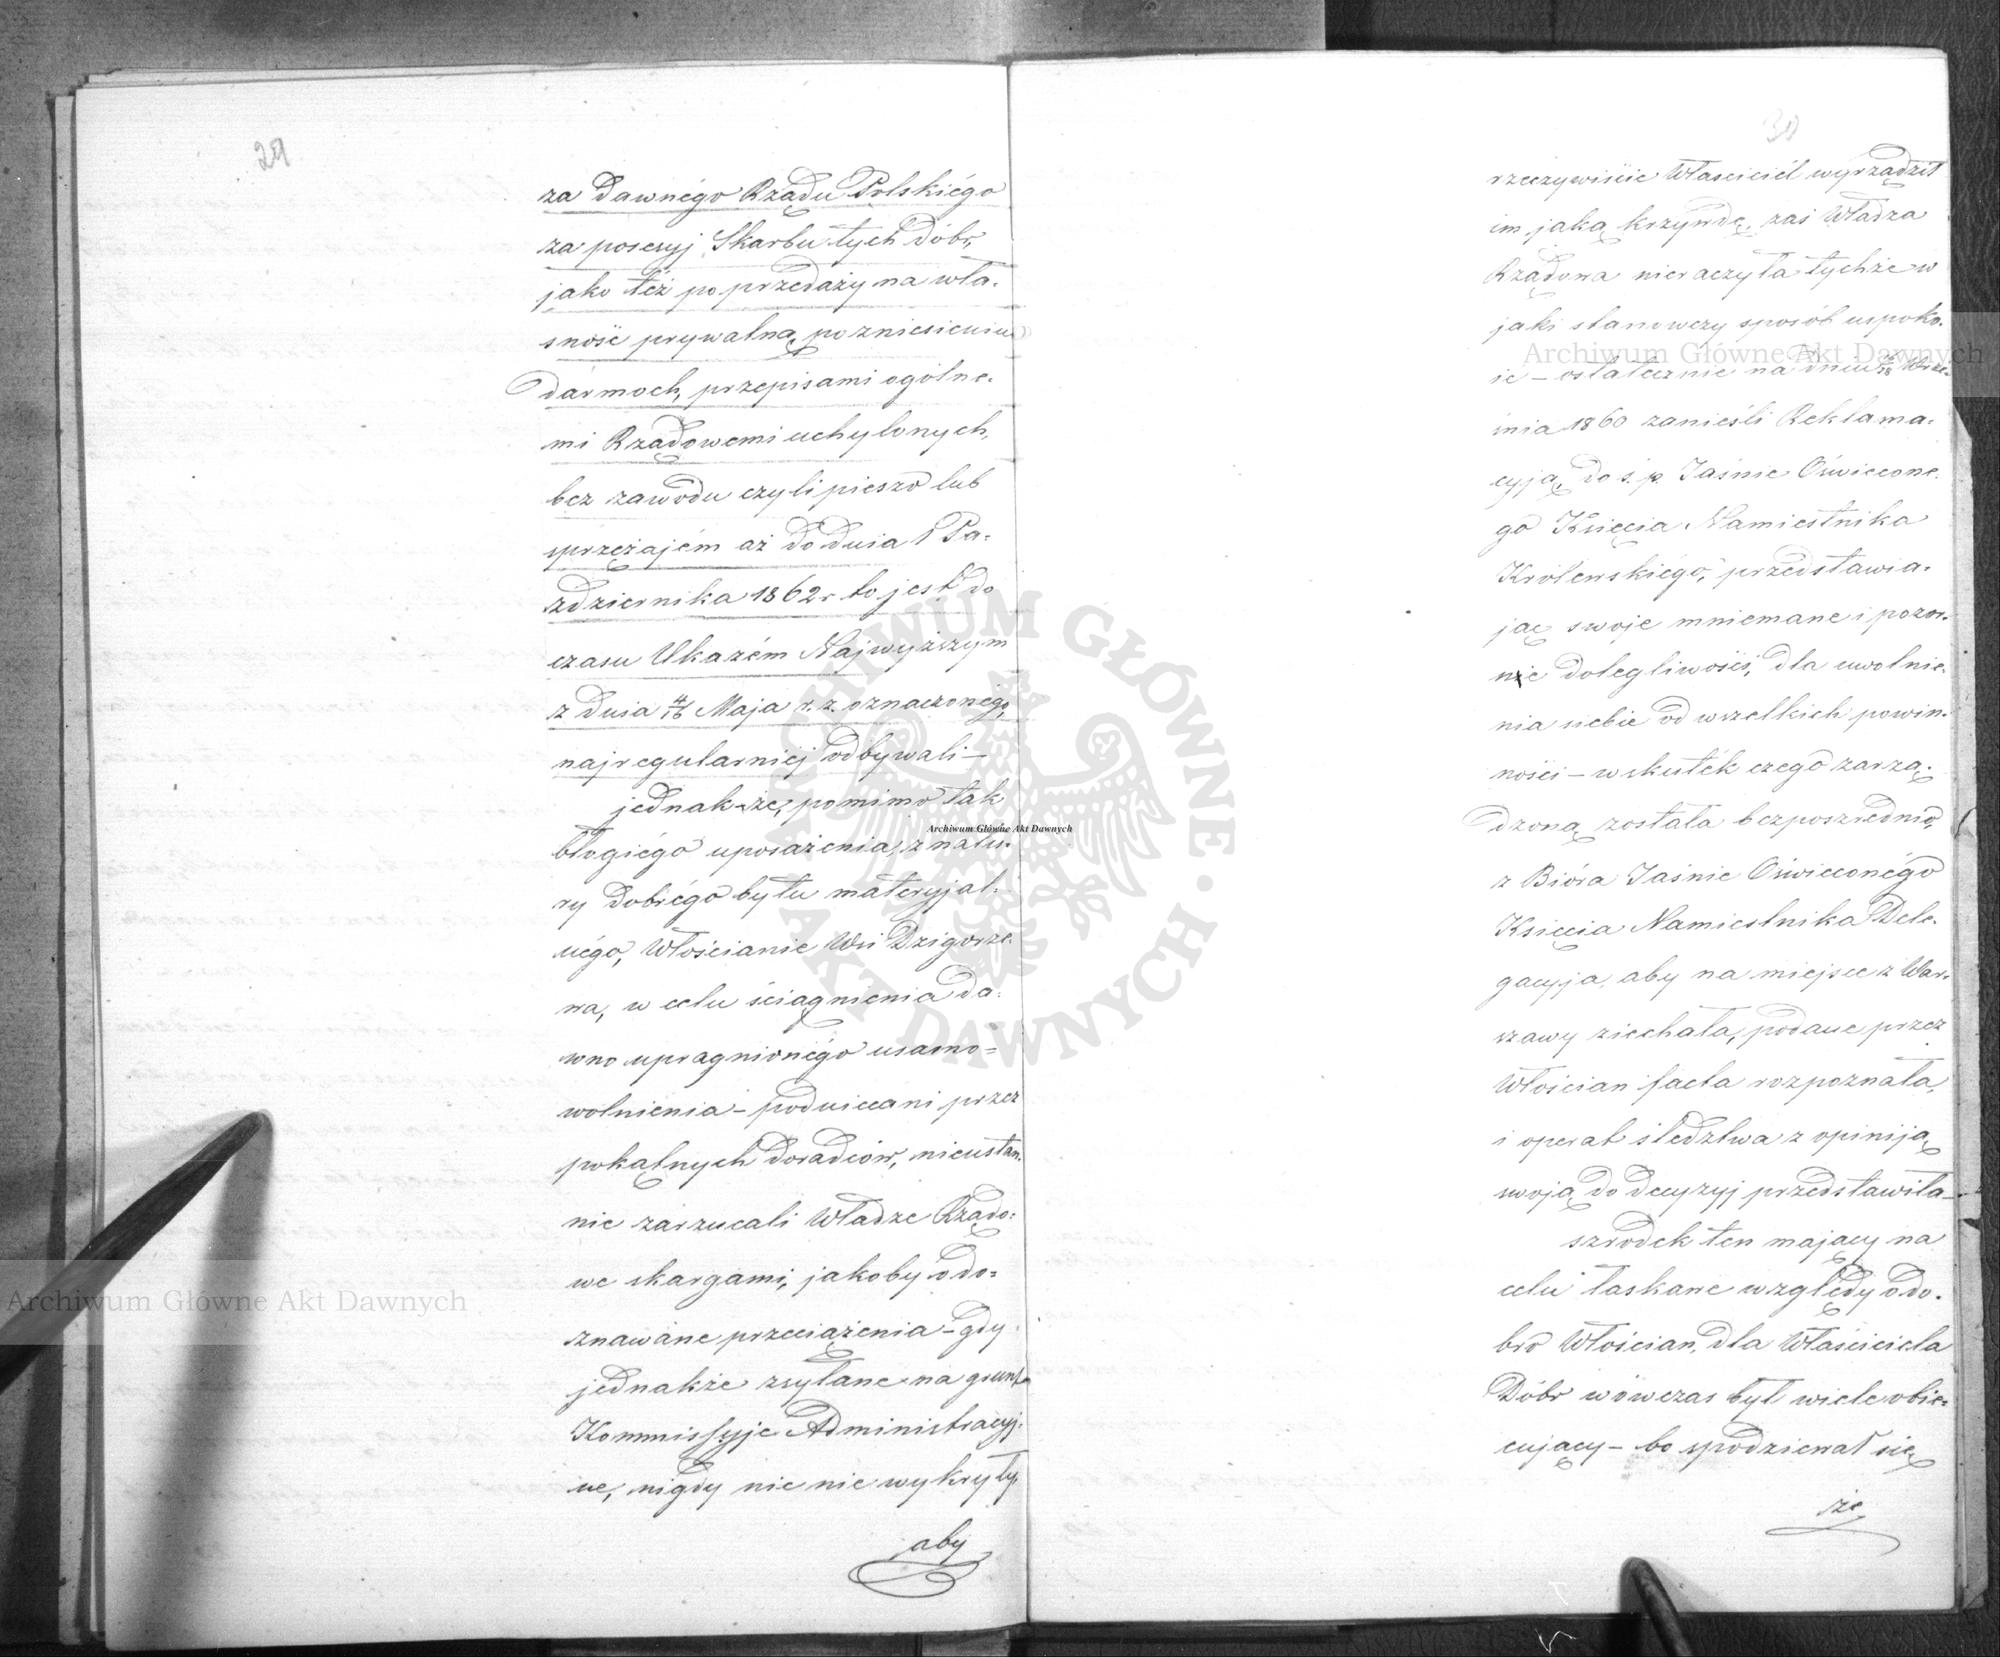 29
za dawnégo Rządu Polskiégo
za posesyj Skarbu tych dóbr,
jako też po przedaży na wła-
sność prywatną, po zniesieniu
darmoch, przepisami ogólne-
mi Rządowemi uchylonych,
bez zawodu czyli pieszo lub
sprzężajém aż do dnia 1 Pa-
ździernika 1862 r to jest do
czasu Ukazém Najwyższym
z dnia 4/16 Maja r. z. oznaczonégo,
najregularniéj odbywali —
jednak-że, pomimo tak
błogiégo uposażenia, z natu-
ry dobrégo bytu materyjal-
négo, Włościanie Wsi Dzigorze-
wa, w celu ściągnienia da-
wno upragnionégo usamo=
wolnienia – podniecani przez
pokątnych doradców, nieustan-
nie zarzucali Władze Rządo-
we skargami, jakoby o do=
znawane przeciążenia – gdy
jednakże zsyłane na grunt
Kommissyje Administracyj-
ne, nigdy nic nie wykryły,
aby
30
rzeczywiście Właściciel wyrządził
im jaką krzywdę, zaś Władza
Rządowa nie raczyła tychże w
jaki stanowczy sposób uspoko-
ić – ostatecznie na dniu 6/18 Wrze-
śnia 1860 zanieśli Reklama-
cyją, do ś. p. Jaśnie Oświecone-
go Księcia Namiestnika
Królewskiégo, przedstawia-
jąc swoje mniemane i pozor-
nie dolegliwości, dla uwolnie-
nia siebie od wszelkich powin-
ności – w skuték czego zarzą-
dzoną została bezpośrednio,
z Bióra Jaśnie Oświeconégo
Księcia Namiestnika Dele-
gacyja, aby na miejsce z War-
szawy ziechała, podane przez
Włościan facta rozpoznała,
i operat śledztwa z opiniją
swoją do decyzyj przedstawiła —
szrodek ten mający na
celu łaskawe względy o do-
bro Włościan, dla Właściciela
Dóbr wówczas był wiele obie-
cujący – bo spodziewał się
że
Archiwum Główne Akt Dawnych
Archiwum Główne Akt Dawnych
Archiwum Główne Akt Dawnych
ARCHIWUM GŁÓWNE · AKT DAWNYCH ·